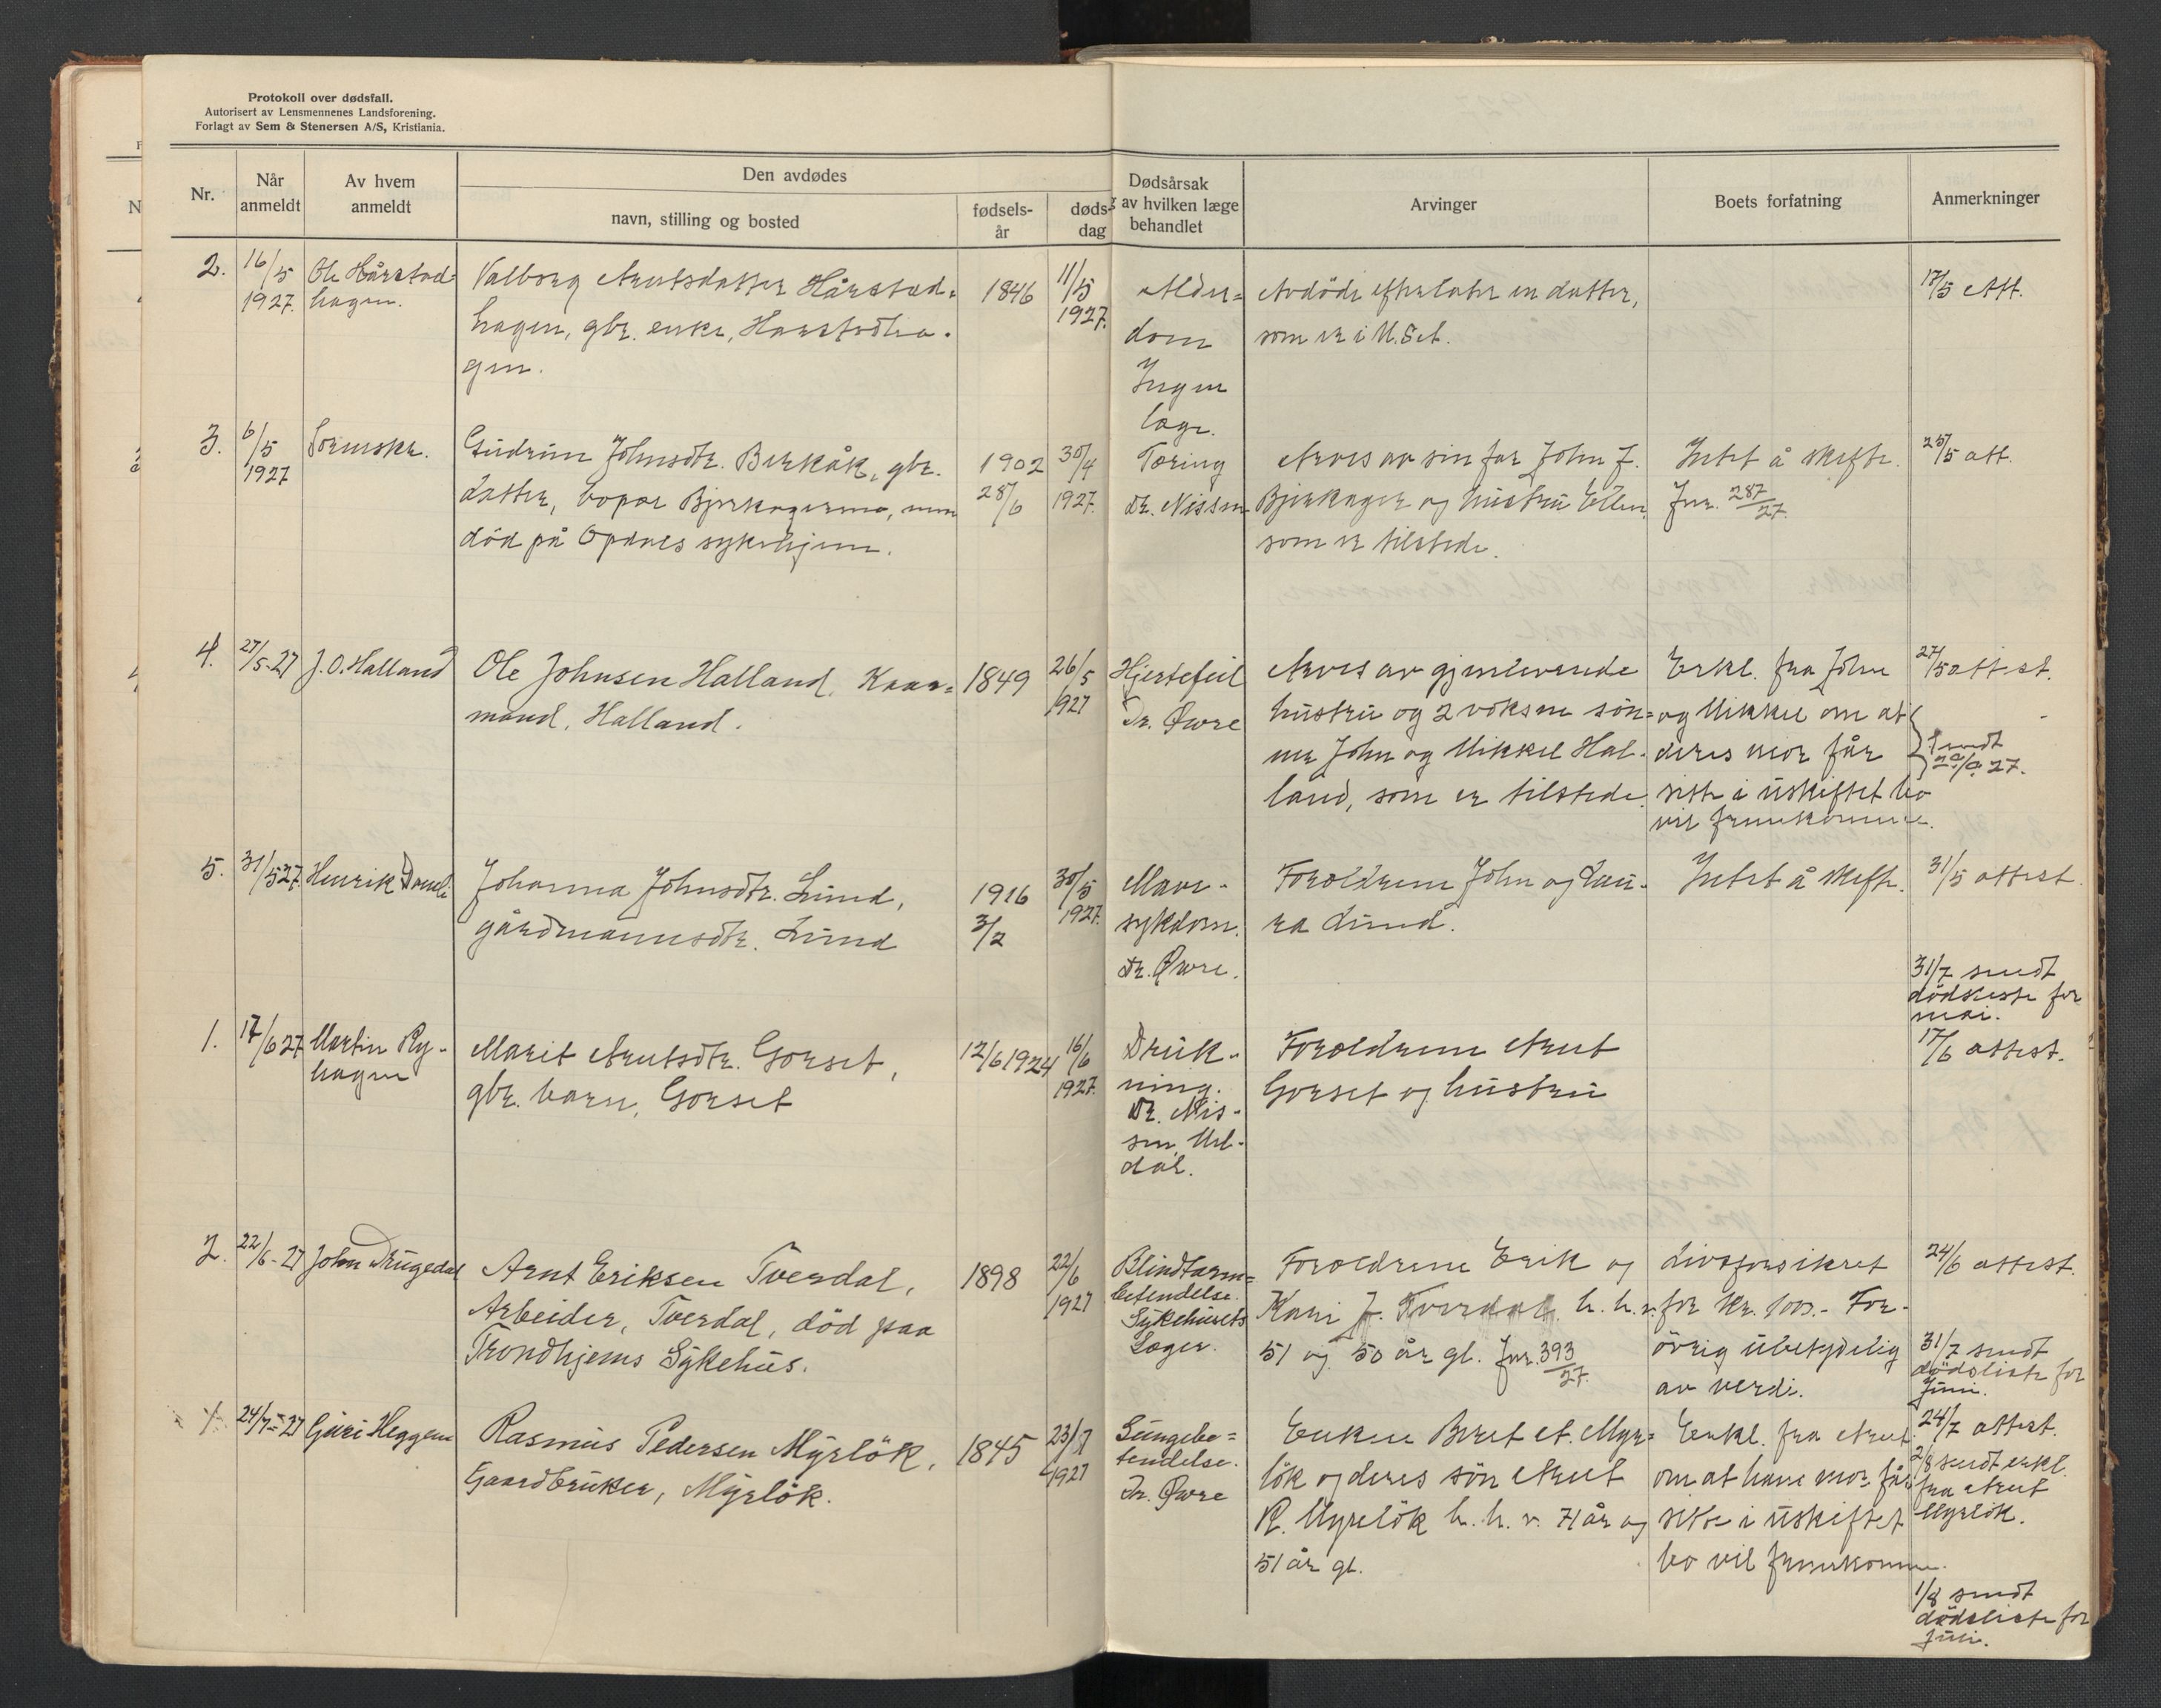 Protokoll over dødsfall.
Autorisert av Lensmennenes Landsforening.
Forlagt av Sem & Stenersen A/S, Kristiania.
Nr.
Når
anmeldt
Av hvem
anmeldt
Den avdødes
navn, stilling og bosted
fødsels-
år
døds-
dag
Dødsårsak
av hvilken læge
behandlet
Arvinger
Boets forfatning
Anmerkninger
2.
16/5
1927.
Ole Hårstad-
hagen.
Valborg Arntsdatter Hårstad-
hagen, gbr. enke, Harstadha-
gen.
1846
11/5
1927.
Alder-
dom
Ingen
læge.
Avdöde efterlater en datter,
som er i U.S.
17/5 Att.
3.
6/5
1927
Sorenskr.
Gudrun Johnsdtr. Berkåk, gbr.
datter, bopæl Bjerkagermo, men
död på Opdals sykehjem.
1902
28/6
30/4
1927.
Tæring
Dr. Nissen
Arves av sin far John J.
Bjerkager og hustru Ellen,
som er tilstede.
Intet å skifte.
Jnr. 287/27.
25/5 att.
4.
27/5-27
J. O. Halland
Ole Johnsen Halland, Kaar-
mand, Halland.
1849
26/5
1927
Hjertefeil
Dr. Øwre
Arves av gjenlevende
hustru og 2 voksne søn-
ner John og Mikkel Hal-
land, som er tilstede.
Erkl. fra John
og Mikkel om at
deres mor får
sitte i uskiftet bo
vil fremkomme.
27/5 attest.
sendt
27.
5.
31/5 27.
Henrik
Johanna Johnsdtr. Lund,
gårdmannsdtr. Lund
1916
3/2
30/5
1927.
Mave-
sykdom.
Dr. Øwre.
Foreldrene John og Lau-
ra Lund.
Intet å skifte.
31/5 attest.
31/7 sendt
dödsliste for
mai.
1.
17/6 27
Martin Ry-
hagen
Marit Arntsdtr. Gorset,
gbr. barn, Gorset
12/6 1924
16/6
1927.
Druk-
ning.
Dr. Nis-
sen, Mel-
dal.
Foreldrene Arnt
Gorset og hustru
17/6 attest.
2.
22/6-27
John Drugedal
Arnt Eriksen Tverdal,
Arbeider, Tverdal, död paa
Trondhjems Sykehus.
1898
22/6
1927
Blindtarm-
betendelse.
Sykehusets
Læger.
Foreldrene Erik og
Kari J. Tverdal, h. h. v.
51 og 50 år gl. Jnr. 393/27.
Livsforsikret
for kr. 1000.- For-
övrig ubetydelig
av verdi.
24/6 attest.
31/7 sendt
dödsliste for
Juni.
1.
24/7-27
Guri Heggem
Rasmus Pedersen Myrlök,
Gaardbruker, Myrlök.
1845
23/7
1927
Lungebe-
tendelse.
Dr. Øwre
Enken Beret A. Myr-
lök og deres sön Arnt
R. Myrlök h. h. v. 71 år og
51 år gl.
Erkl. fra Arnt
om at hans mor får
sitte i uskiftet
bo vil fremkomme.
24/7 attest.
2/8 sendt erkl.
fra Arnt
Myrlök.
1/8 sendt
dödsliste for
Juli.